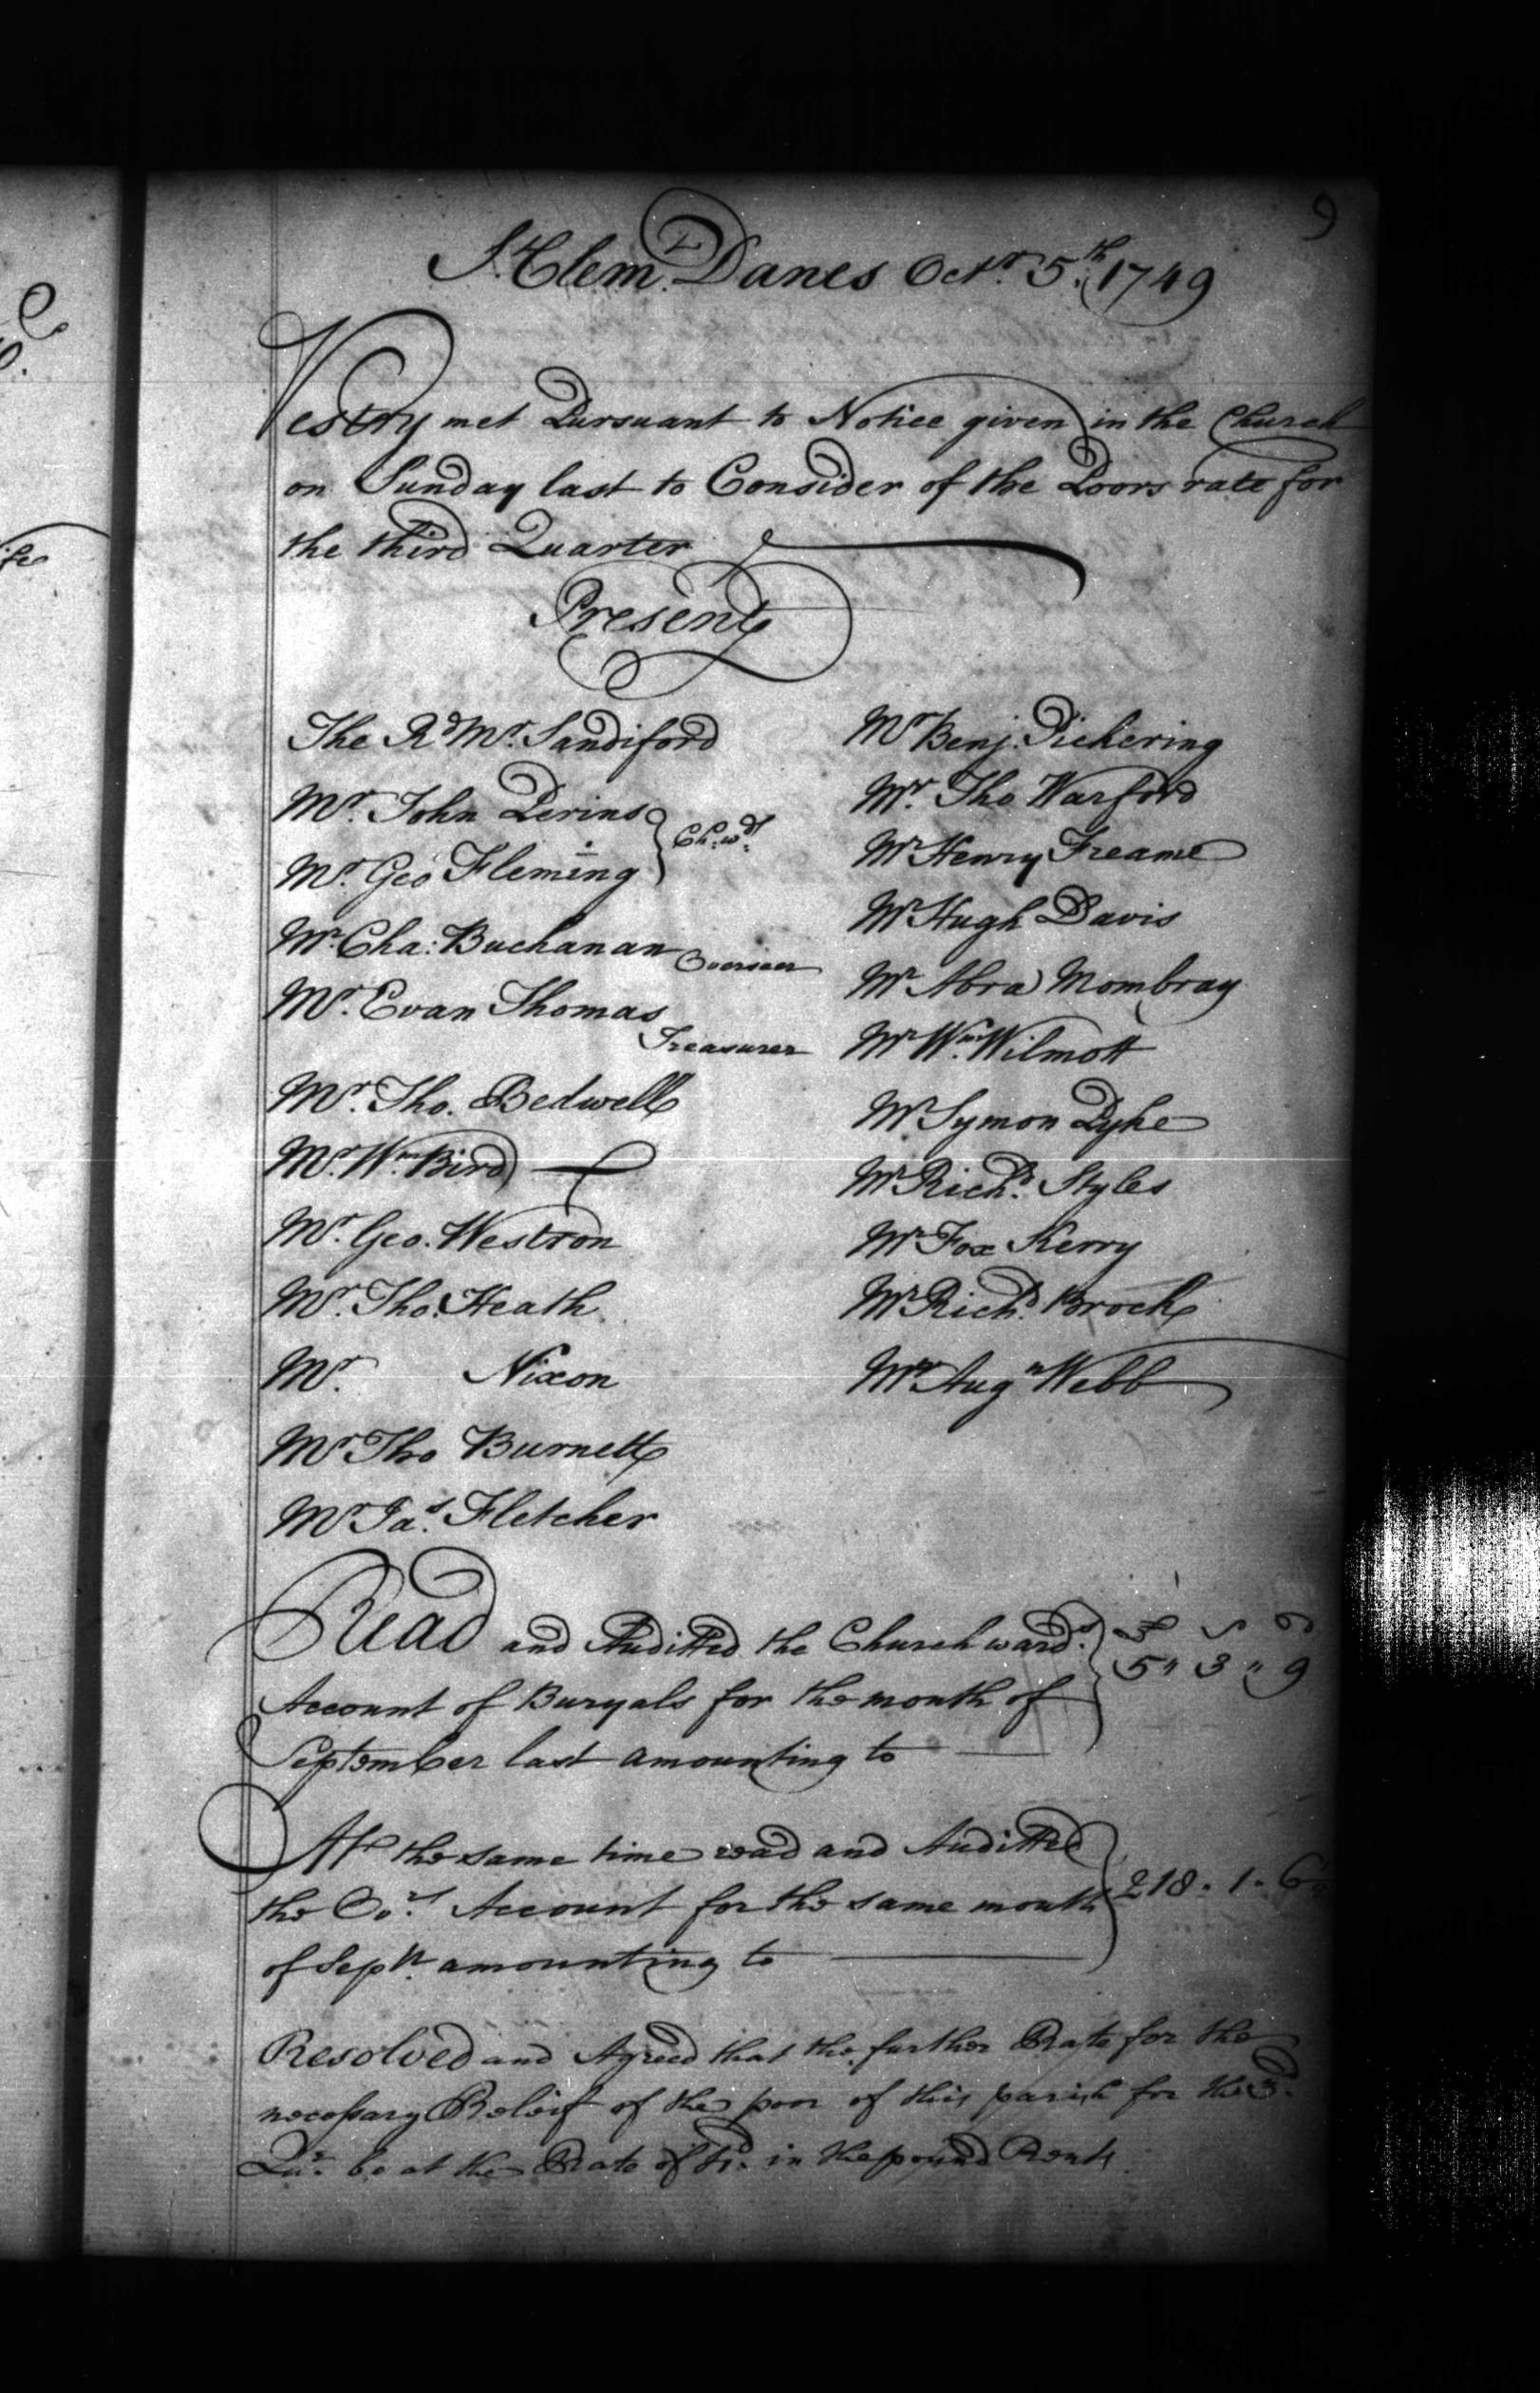 9
St Clemt Danes Octr. 5th. 1749
Vestry met Pursuant to Notice given in the Church
on Sunday last to Consider of the Poors rate for
the third Quarter
Present
The Rd Mr. Sandiford
Mr. John Perins
Mr. Geo Fleming
Ch:wds
Mr. Cha: Buchanan Overseer
Mr. Evan Thomas
Treasurer
Mr. Tho. Bedwell
Mr. Wm. Bird
Mr. Geo. Westron
Mr. Tho. Heath
Mr. Nixon
Mr. Tho Burnett
Mr. Jas. Fletcher
Mr Benj. Pickering
Mr. Tho Warford
Mr Henry Freame
Mr Hugh Davis
Mr Abra Mombray
Mr Wm. Wilmott
Mr Symon Dyke
Mr Richd. Styles
Mr Fox Kerry
Mr Richd. Brock
Mr Augn Webb
Read and Auditted the Churchwards.
Account of Buryals for the month of
September last amounting to
£ s d
5 " 3 " 9
At the same time read and Auditted
the Ovrs. Account for the same month
of Septr. amounting to
218 . 1 . 6
Resolved and Agreed that the further Rate for the
necessary Releif of the poor of this parish for the 3d.
Qur. be at the Rate of in the pound Rent